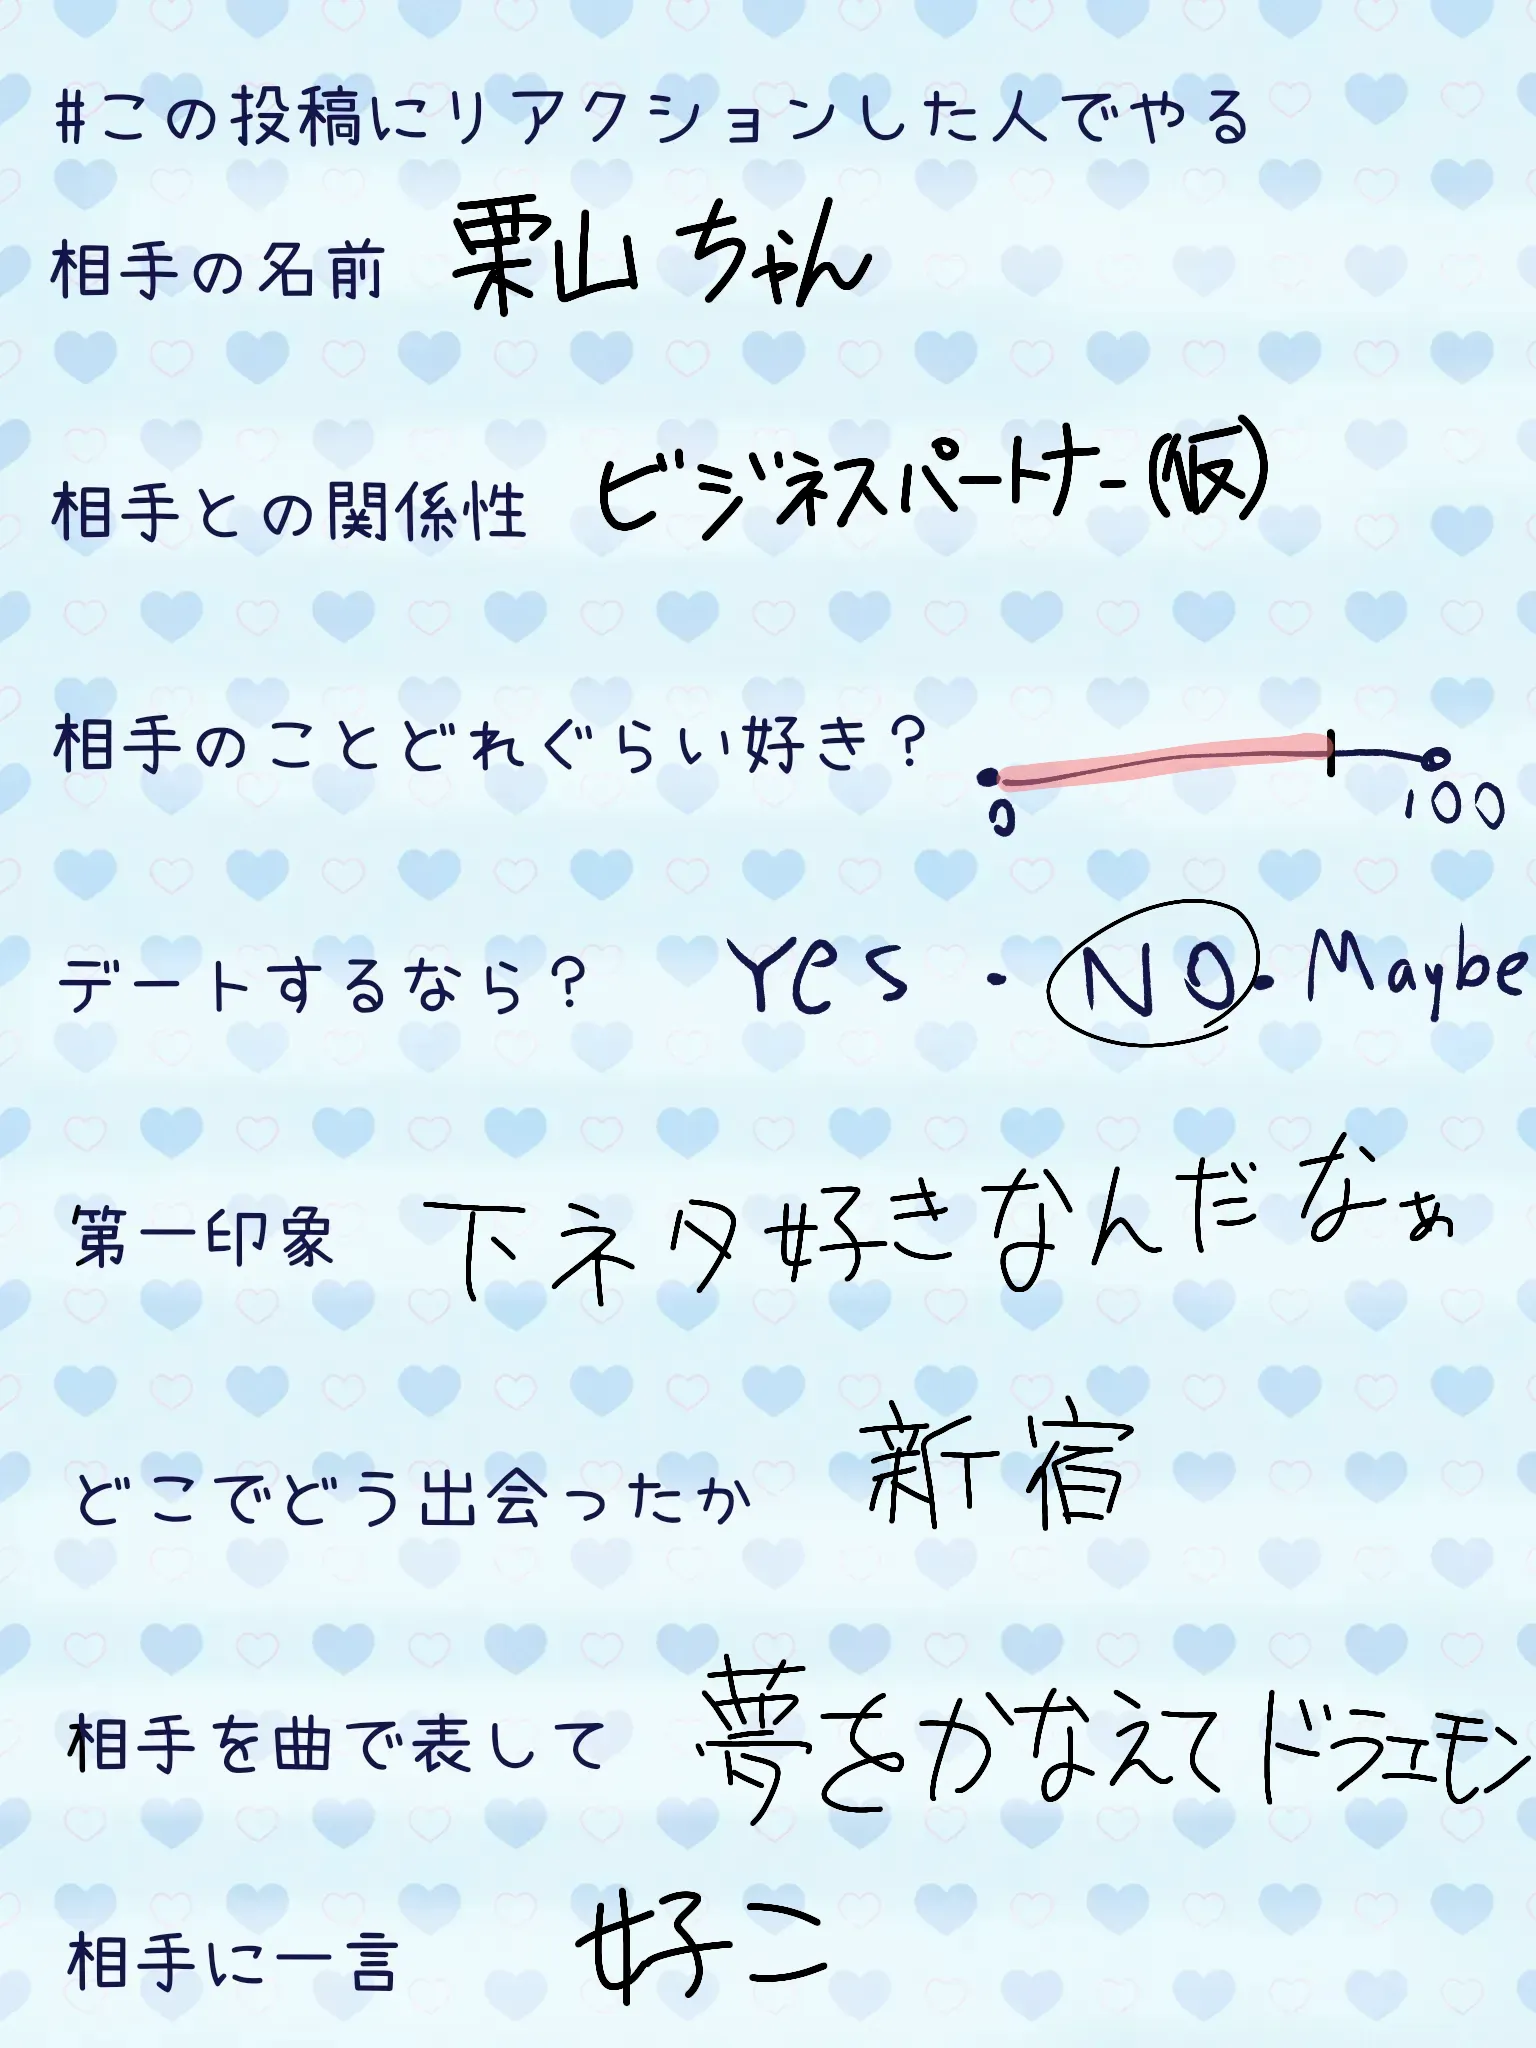 #この投稿にリアクションした人でやる
相手の名前 栗山ちゃん
相手との関係性 ビジネスパートナー(仮)
相手のことどれぐらい好き?
0 100
デートするなら? Yes・NO・Maybe
第一印象 下ネタ好きなんだなぁ
どこでどう出会ったか 新宿
相手を曲で表して 夢をかなえてドラエモン
相手に一言 好こ